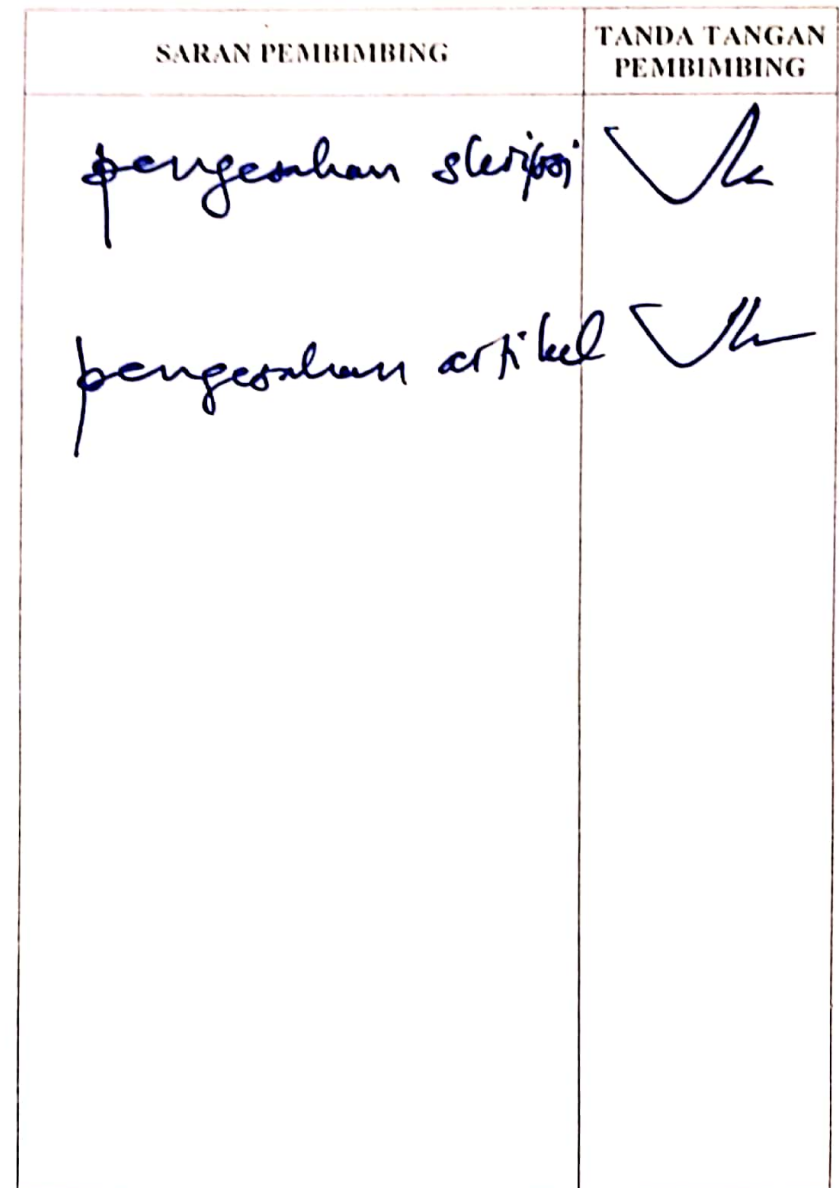 SARAN PEMBIMBING
TANDA TANGAN
PEMBIMBING
pengesahan skripsi
pengesahan artikel